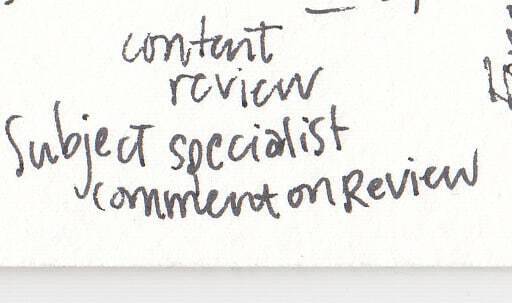 content
review
Subject specialist
comment on Review